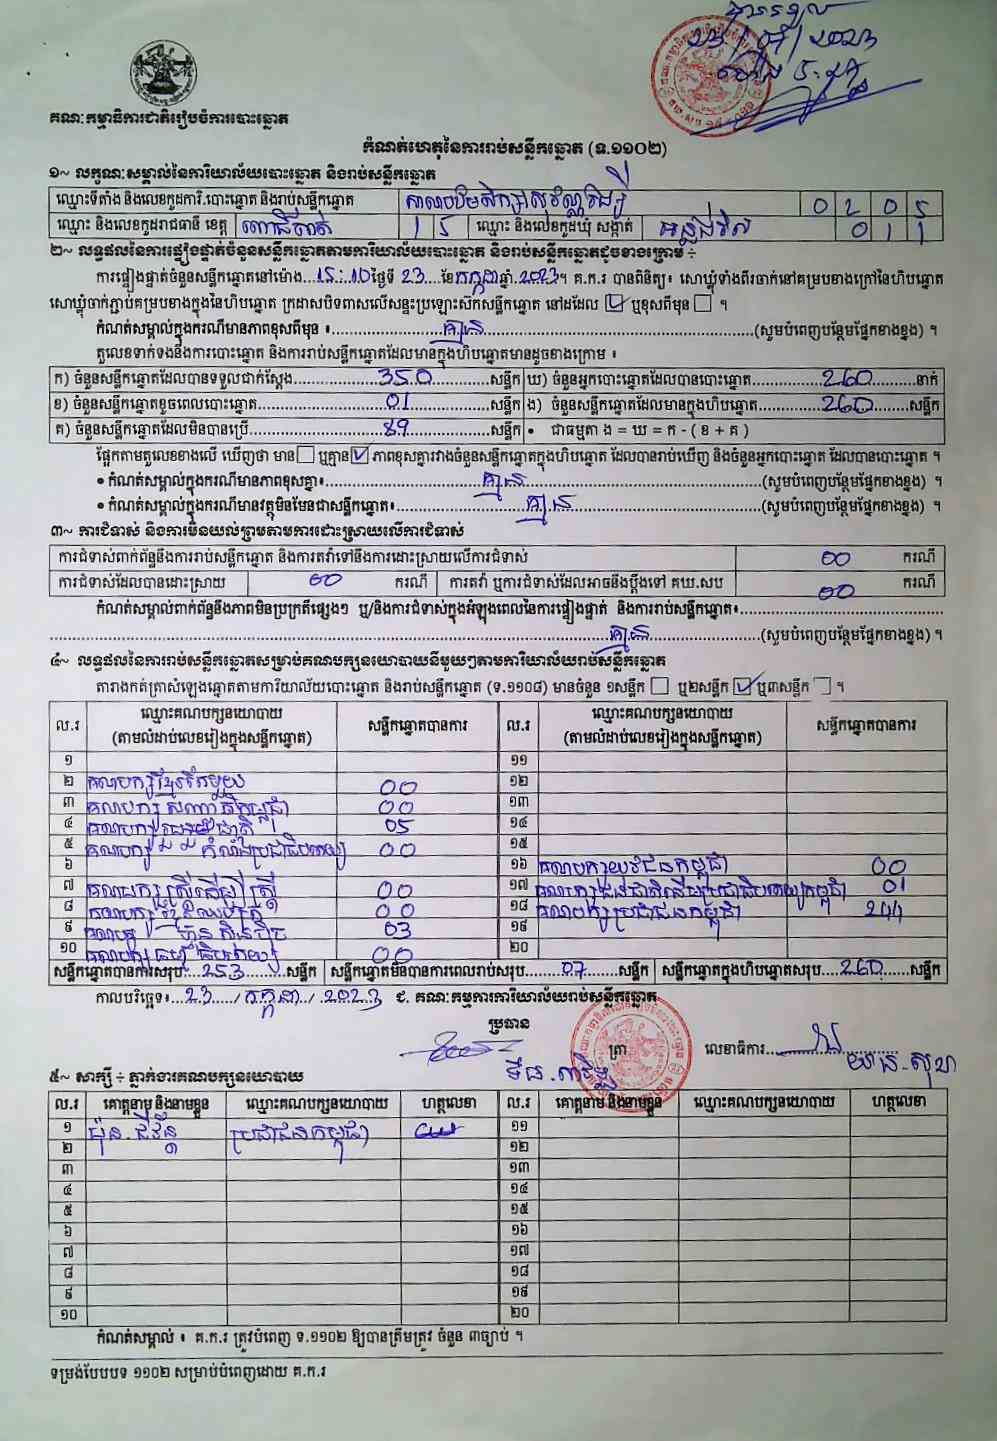 គណៈកម្មាធិការជាតិរៀបចំការបោះឆ្នោត
23 / 07 / 2023
កំណត់ហេតុនៃការរាប់សន្លឹកឆ្នោត (ទ.១១០២)
១~ លក្ខណៈសម្គាល់នៃការិយាល័យបោះឆ្នោត និងរាប់សន្លឹកឆ្នោត
ឈ្មោះទីតាំង និងលេខកូដការិ.បោះឆ្នោត និងរាប់សន្លឹកឆ្នោត 0 2 0 5
ឈ្មោះ និងលេខកូដរាជធានី ខេត្ត ពោធិ៍សាត់ 1 5 ឈ្មោះ និងលេខកូដឃុំ សង្កាត់ 0 1 1
២~ លទ្ធផលនៃការផ្ទៀងផ្ទាត់ចំនួនសន្លឹកឆ្នោតតាមការិយាល័យបោះឆ្នោត និងរាប់សន្លឹកឆ្នោតដូចខាងក្រោម ÷
ការផ្ទៀងផ្ទាត់ចំនួនសន្លឹកឆ្នោតនៅម៉ោង 15:10 ថ្ងៃទី 23 ខែ កក្កដា ឆ្នាំ 2023 ។ គ.ក.រ បានពិនិត្យ៖ សោឃ្លុំទាំងពីរចាក់នៅគម្របខាងក្រៅនៃហិបឆ្នោត
សោឃ្លុំចាក់ភ្ជាប់គម្របខាងក្នុងនៃហិបឆ្នោត ក្រដាសបិទពាសលើសន្ទះប្រឡោះស៊កសន្លឹកឆ្នោត នៅដដែល ☑ ឬខុសពីមុន ☐ ។
កំណត់សម្គាល់ក្នុងករណីមានភាពខុសពីមុន ៖ គ្មាន (សូមបំពេញបន្ថែមផ្នែកខាងខ្នង) ។
តួលេខទាក់ទងនឹងការបោះឆ្នោត និងការរាប់សន្លឹកឆ្នោតដែលមានក្នុងហិបឆ្នោតមានដូចខាងក្រោម ៖
ក) ចំនួនសន្លឹកឆ្នោតដែលបានទទួលជាក់ស្តែង 350 សន្លឹក ឃ) ចំនួនអ្នកបោះឆ្នោតដែលបានបោះឆ្នោត 260 នាក់
ខ) ចំនួនសន្លឹកឆ្នោតខូចពេលបោះឆ្នោត 01 សន្លឹក ង) ចំនួនសន្លឹកឆ្នោតដែលមានក្នុងហិបឆ្នោត 260 សន្លឹក
គ) ចំនួនសន្លឹកឆ្នោតដែលមិនបានប្រើ 89 សន្លឹក • ជាធម្មតា ង = ឃ = ក - ( ខ + គ )
ផ្អែកតាមតួលេខខាងលើ ឃើញថា មាន ☐ ឬគ្មាន ☑ ភាពខុសគ្នារវាងចំនួនសន្លឹកឆ្នោតក្នុងហិបឆ្នោត ដែលបានរាប់ឃើញ និងចំនួនអ្នកបោះឆ្នោត ដែលបានបោះឆ្នោត ។
• កំណត់សម្គាល់ក្នុងករណីមានភាពខុសគ្នា៖ គ្មាន (សូមបំពេញបន្ថែមផ្នែកខាងខ្នង) ។
• កំណត់សម្គាល់ក្នុងករណីមានវត្ថុមិនមែនជាសន្លឹកឆ្នោត៖ គ្មាន (សូមបំពេញបន្ថែមផ្នែកខាងខ្នង) ។
៣~ ការជំទាស់ និងការមិនយល់ព្រមតាមការដោះស្រាយលើការជំទាស់
ការជំទាស់ពាក់ព័ន្ធនឹងការរាប់សន្លឹកឆ្នោត និងការតវ៉ាទៅនឹងការដោះស្រាយលើការជំទាស់ 00 ករណី
ការជំទាស់ដែលបានដោះស្រាយ 00 ករណី ការតវ៉ា ឬការជំទាស់ដែលអាចនឹងប្តឹងទៅ គឃ.សប 00 ករណី
កំណត់សម្គាល់ពាក់ព័ន្ធនឹងភាពមិនប្រក្រតីផ្សេងៗ ឬ/និងការជំទាស់ក្នុងអំឡុងពេលនៃការផ្ទៀងផ្ទាត់ និងការរាប់សន្លឹកឆ្នោត៖
គ្មាន (សូមបំពេញបន្ថែមផ្នែកខាងខ្នង) ។
៤~ លទ្ធផលនៃការរាប់សន្លឹកឆ្នោតសម្រាប់គណបក្សនយោបាយនីមួយៗតាមការិយាល័យរាប់សន្លឹកឆ្នោត
តារាងកត់ត្រាសំឡេងឆ្នោតតាមការិយាល័យបោះឆ្នោត និងរាប់សន្លឹកឆ្នោត (ទ.១១០៨) មានចំនួន ១សន្លឹក ☐ ឬ២សន្លឹក ☑ ឬ៣សន្លឹក ☐ ។
ល.រ ឈ្មោះគណបក្សនយោបាយ សន្លឹកឆ្នោតបានការ ល.រ ឈ្មោះគណបក្សនយោបាយ សន្លឹកឆ្នោតបានការ
(តាមលំដាប់លេខរៀងក្នុងសន្លឹកឆ្នោត) (តាមលំដាប់លេខរៀងក្នុងសន្លឹកឆ្នោត)
១ ១១
២ គណបក្សខ្មែរតែមួយ 00 ១២
៣ គណបក្ស កម្ពុជា 00 ១៣
៤ គណបក្ស ជាតិ 05 ១៤
៥ គណបក្ស កំលាំងប្រជាធិបតេយ្យ 00 ១៥
៦ ១៦ គណបក្សយុវជនកម្ពុជា 00
៧ គណបក្សស្ត្រីដើម្បីស្ត្រី 00 ១៧ គណបក្សជនជាតិដើមប្រជាធិបតេយ្យកម្ពុជា 01
៨ គណបក្ស 00 ១៨ គណបក្សប្រជាជនកម្ពុជា 244
៩ គណបក្ស ហ៊្វុនស៊ិនប៉ិច 03 ១៩
១០ គណបក្ស 00 ២០
សន្លឹកឆ្នោតបានការសរុប 253 សន្លឹក សន្លឹកឆ្នោតមិនបានការពេលរាប់សរុប 07 សន្លឹក សន្លឹកឆ្នោតក្នុងហិបឆ្នោតសរុប 260 សន្លឹក
កាលបរិច្ឆេទ៖ 23 / កក្កដា / 2023 ជ. គណៈកម្មការការិយាល័យរាប់សន្លឹកឆ្នោត
ប្រធាន ត្រា លេខាធិការ
៥~ សាក្សី ÷ ភ្នាក់ងារគណបក្សនយោបាយ
ល.រ គោត្តនាម និងនាមខ្លួន ឈ្មោះគណបក្សនយោបាយ ហត្ថលេខា ល.រ គោត្តនាម និងនាមខ្លួន ឈ្មោះគណបក្សនយោបាយ ហត្ថលេខា
១ ប្រជាជនកម្ពុជា ១១
២ ១២
៣ ១៣
៤ ១៤
៥ ១៥
៦ ១៦
៧ ១៧
៨ ១៨
៩ ១៩
១០ ២០
កំណត់សម្គាល់ ៖ គ.ក.រ ត្រូវបំពេញ ទ.១១០២ ឱ្យបានត្រឹមត្រូវ ចំនួន ៣ច្បាប់ ។
ទម្រង់បែបបទ ១១០២ សម្រាប់បំពេញដោយ គ.ក.រ